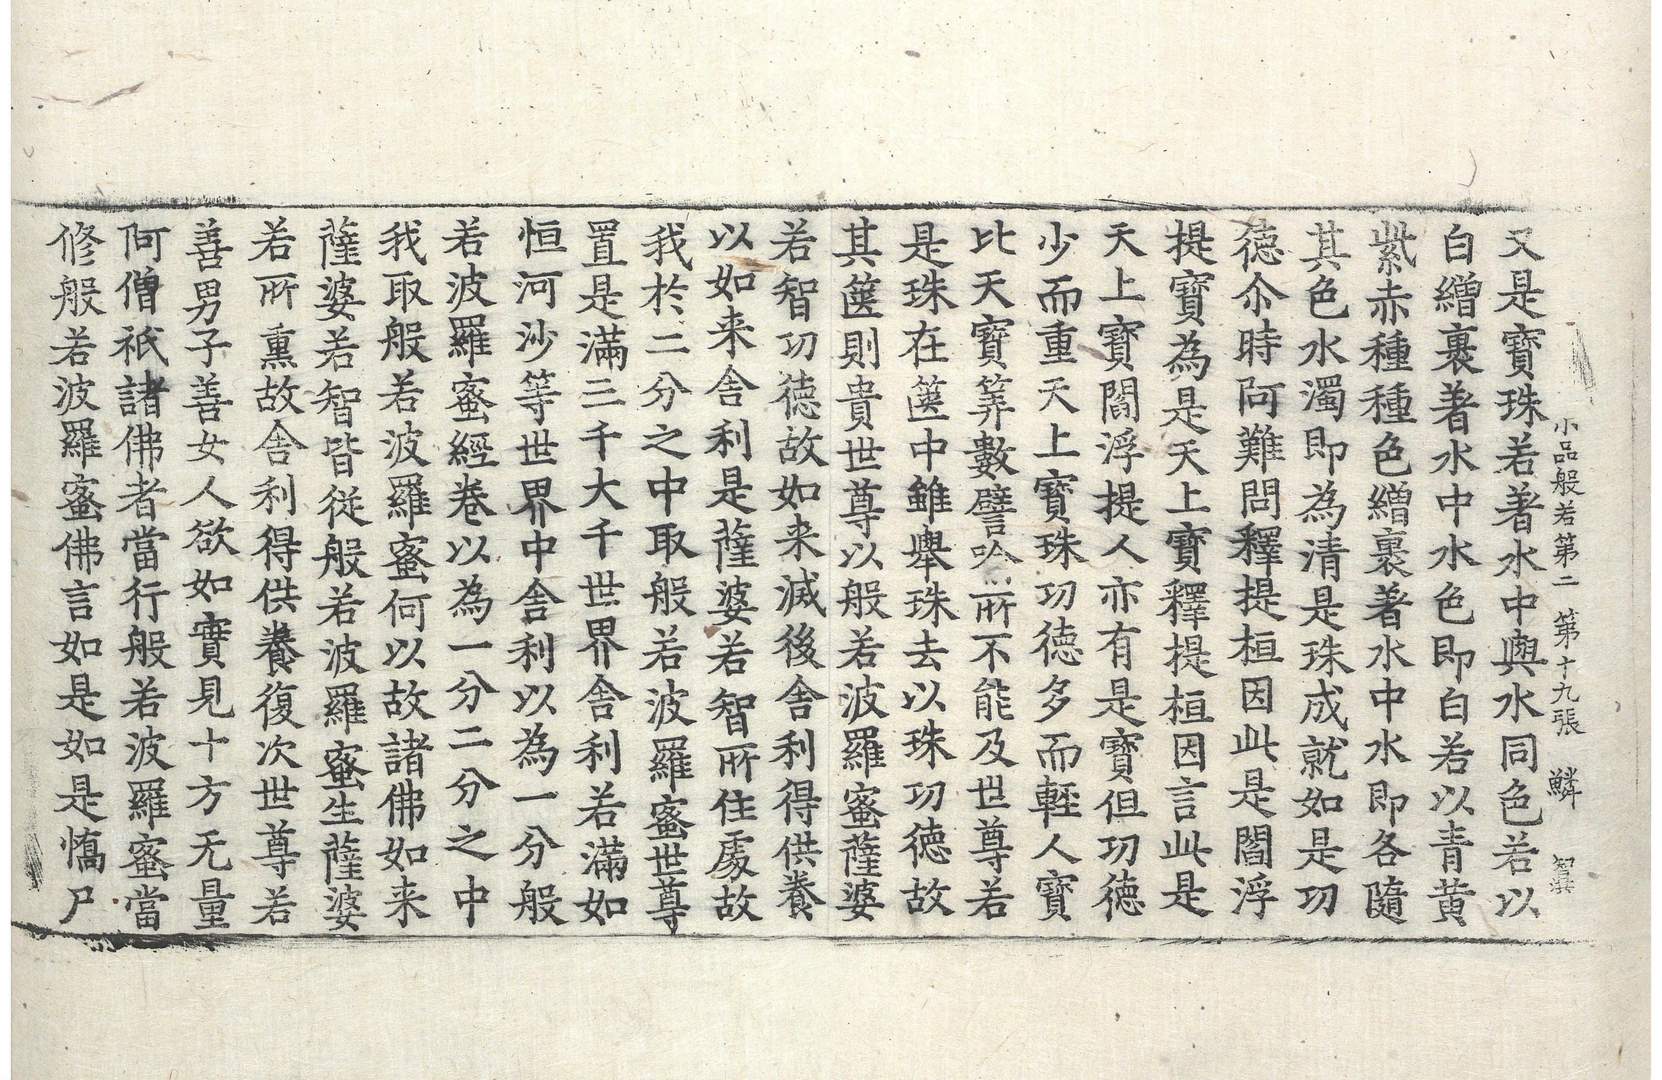 小品般若第二　第十九張　鱗　智淇
又是寶珠若著水中與水同色若以
白繒裹著水中水色即白若以青黃
紫赤種種色繒裹著水中水即各隨
其色水濁即為清是珠成就如是功
德尒時阿難問釋提桓因此是閻浮
提寶為是天上寶釋提桓因言此是
天上寶閻浮提人亦有是寶但功德
少而重天上寶珠功德多而輕人寶
比天寶筭數譬喻所不能及世尊若
是珠在篋中雖舉珠去以珠功德故
其篋則貴世尊以般若波羅蜜薩婆
若智功德故如来滅後舎利得供養
以如来舎利是薩婆若智所住處故
我於二分之中取般若波羅蜜世尊
置是滿三千大千世界舎利若滿如
恒河沙等世界中舎利以為一分般
若波羅蜜經卷以為一分二分之中
我取般若波羅蜜何以故諸佛如来
薩婆若智皆從般若波羅蜜生薩婆
若所熏故舎利得供養復次世尊若
善男子善女人欲如實見十方无量
阿僧祇諸佛者當行般若波羅蜜當
修般若波羅蜜佛言如是如是憍尸